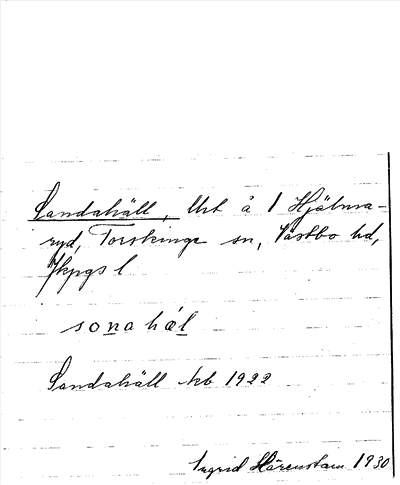 Sandahäll, Uht å 1 Hjälma-
ryd, Torskinge sn, Västbo hd,
Jkpgs l
sonahæl
Sandahäll kb 1922
Ingrid Härenstam 1930